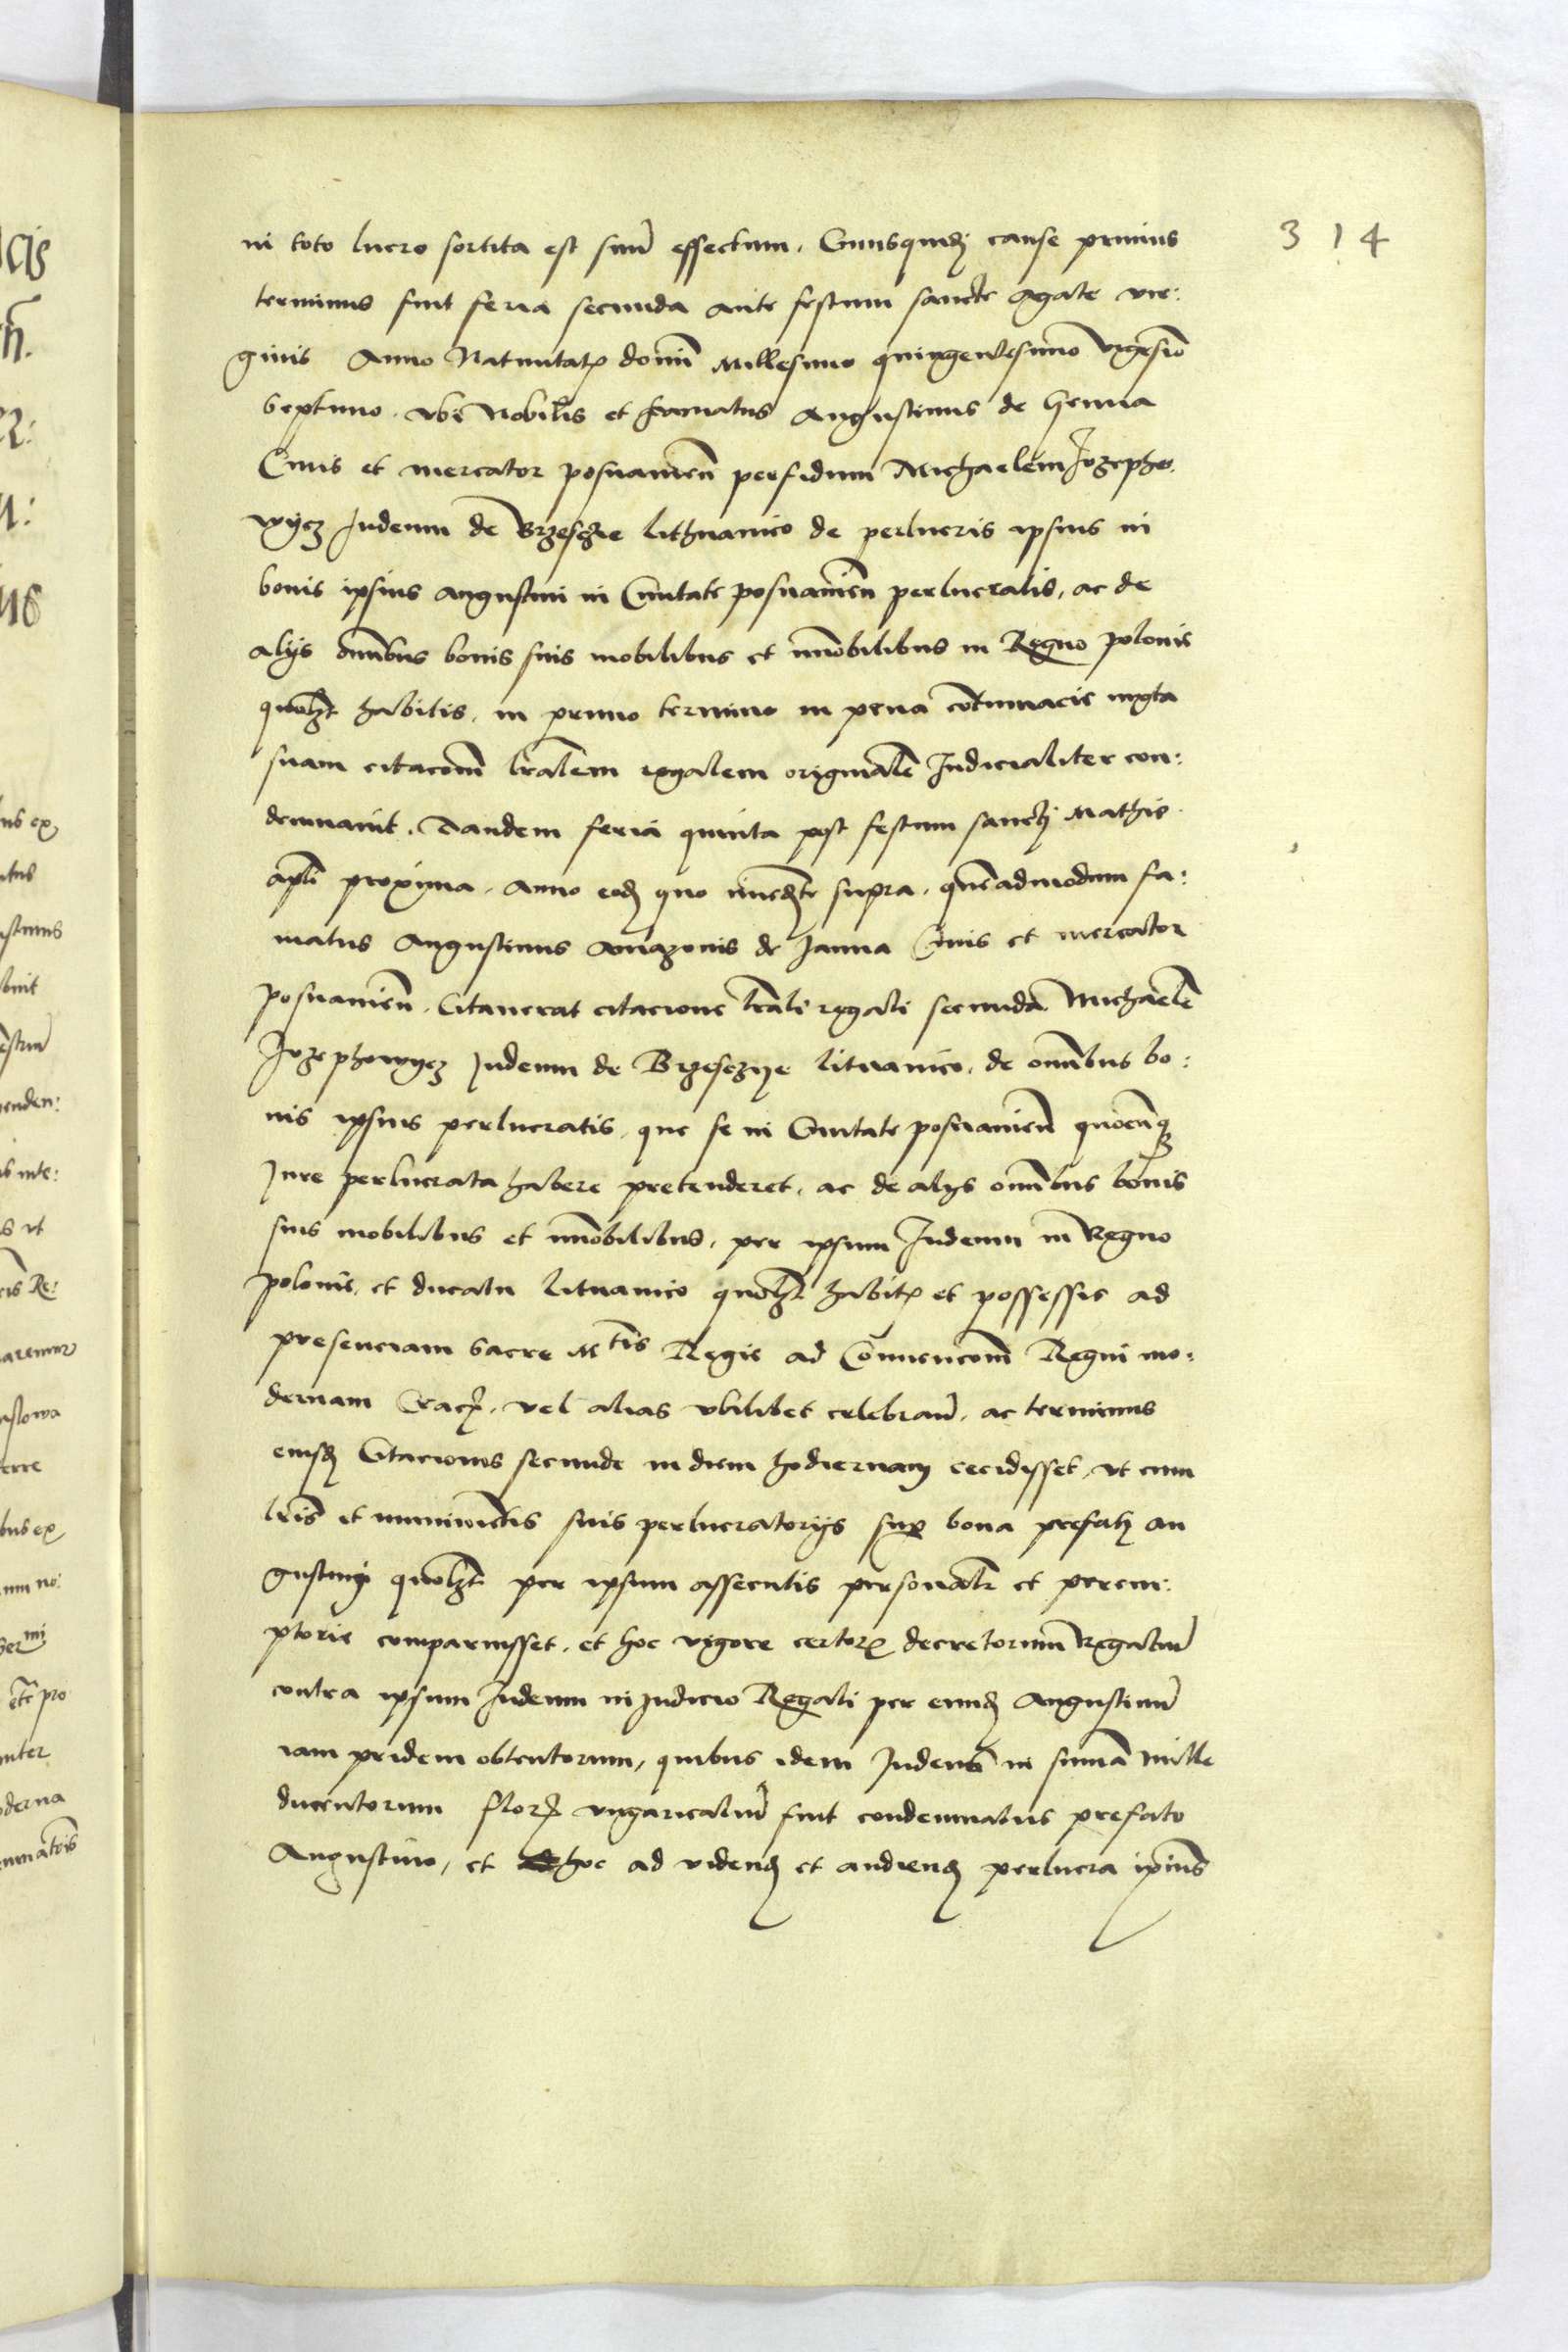 314
in toto lucro sortita est suũ effectum. Cuiusquidẽ cause primus
terminus fuit feria secunda ante festum sancte Agate vir:
ginis Anno Natiuitatꝭ domĩ Millesimo quingentesimo vigesiõ
septimo. vbi Nobilis et famatus Augustinus de Henua
Ciuis et mercator posnanieñ perfidum Michaelem Jozepho
wycz Judeum de Brzesczie lithuanico de perlucris ipsius in
bonis ipsius Augustini in Ciuitate posnanieñ perlucratis, ac de
alijs om̃ibus bonis suis mobilibus et im̃obilibus in Regno polonie
quolꝫt habitis, in primo termino in pena cõtumacie iuxta
suam citacoñem lr̃alem regalem originalẽ Judicialiter con:
demnauit. Tandem feria quinta post festum sancti Mathie
apłi proxima. Anno eodẽ quo immediate supra. quẽadmodum fa:
matus Augustinus Amazonis de Janua Ciuis et mercator
posnanieñ. Citauerat citacione lr̃ali regali secunda Michaelẽ
Jozephowycz Judeum de Brzesczye lituanico, de om̃ibus bo:
nis ipsius perlucratis, que se in Ciuitate posnanieñ quocũqꝫ
Jure perlucrata habere pretenderet, ac de alijs om̃ibus bonis
suis mobilibus et im̃obilibus, per ipsum Judeum in Regno
polonie, et ducatu lituanico quolꝫt habitꝭ et possessis ad
presenciam Sacre Mtis Regie ad Conuencoñem Regni mo:
dernam Cracꝭ. vel alias vbilibet celebrañ. ac terminus
eiusdẽ Citacionis secunde in diem hodiernam cecidisset, vt cum
lr̃is et munimẽtis suis perlucratorijs sup bona prefati Au
gustini quolꝫt per ipsum assecutis personałr et perem:
ptorie comparuisset, et hoc vigore certorꝝ decretorum Regaliũ
contra ipsum Judeum in Judicio Regali per eundẽ Augustinũ
iam pridem obtentorum, quibus idem Judeus in sum̃a mille
ducentorum florꝭ vngaricaliũ fuit condemnatus prefato
Augustino, et hoc ad videndẽ et audiendẽ perlucra ipsius